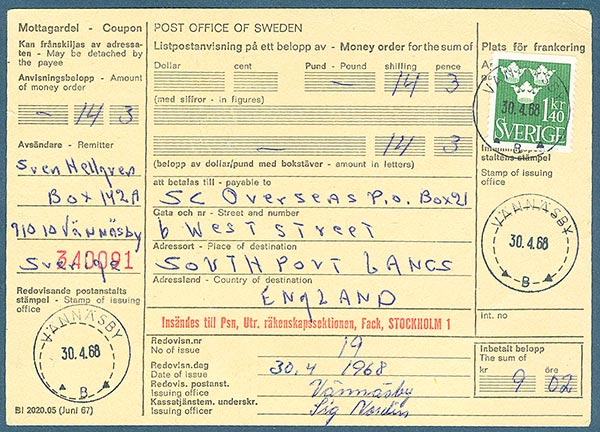 Mottagardel - Coupon
Kan frånskiljas av adressa-
ten - May be detached by
the payee
Anvisningsbelopp - Amount
of money order
- 14 3
Avsändare - Remitter
Sven Hellgren
Box 142A
91010 Vännäsby
Sverige
340091
Redovisande postanstalts
stämpel - Stamp of issuing
office
VÄNNÄSBY
30.4.68
B
BI 2020.05 (Juni 67)
POST OFFICE OF SWEDEN
Listpostanvisning på ett belopp av - Money order for the sum of
Dollar cent Pund - Pound shilling pence
- 14 3
(med siffror - in figures)
- 14 3
(belopp av dollar/pund med bokstäver - amount in letters)
att betalas till - payable to
SC Overseas P.O. Box 21
Gata och nr - Street and number
6 West Street
Adressort - Place of destination
SOUTHPORT LANCS
Adressland - Country of destination
ENGLAND
Insändes till Psn, Utr. räkenskapssektionen, Fack, STOCKHOLM 1
Redovisn.nr
No of issue
19
Redovisn.dag
Date of issue
30.4 1968
Redovis. postanst.
Issuing office
Vännäsby
Kassatjänstem. underskr.
Issuing officer
Sig
Plats för frankering
VÄNNÄSBY
30.4.68
B
1 kr
40
SVERIGE
staltens stämpel
Stamp of issuing
office
VÄNNÄSBY
30.4.68
B
Int. no
Inbetalt belopp
The sum of
kr öre
9 02